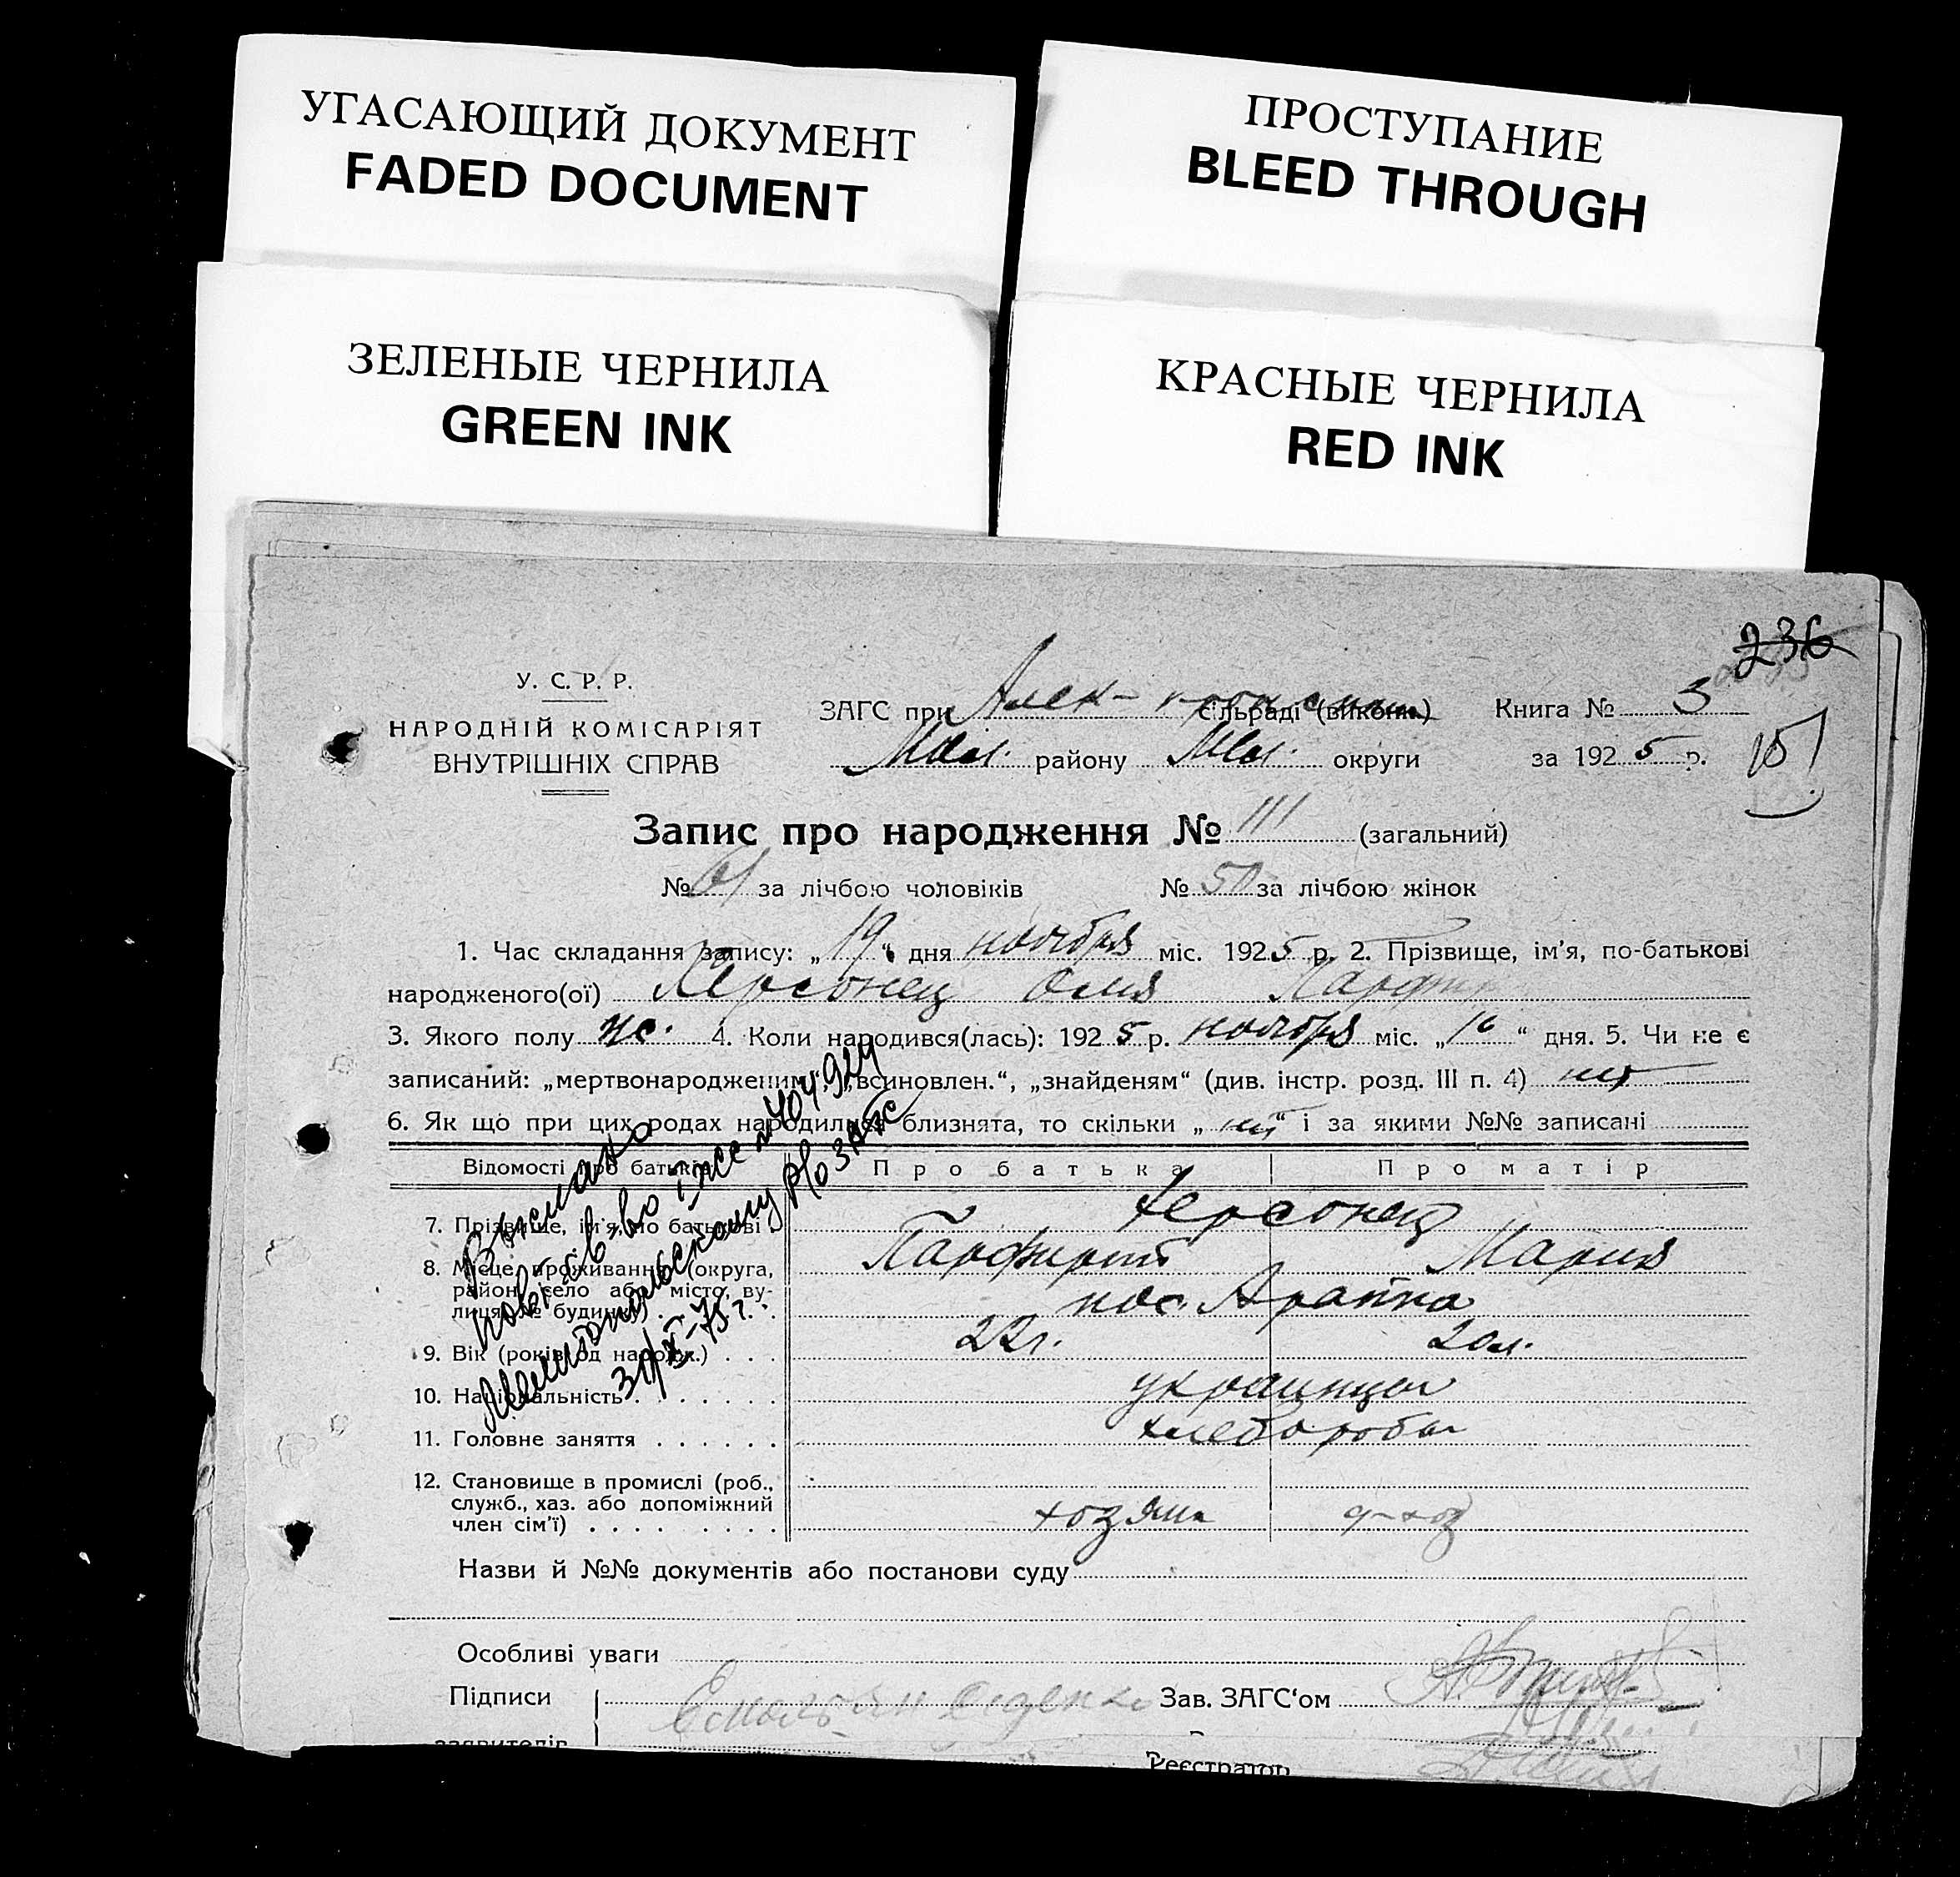 УГАСАЮЩИЙ ДОКУМЕНТ
FADED DOCUMENT
ПРОСТУПАНИЕ
BLEED THROUGH
ЗЕЛЕНЫЕ ЧЕРНИЛА
GREEN INK
КРАСНЫЕ ЧЕРНИЛА
RED INK
236
У. С. Р. Р.
НАРОДНІЙ КОМІСАРІЯТ
ВНУТРІШНІХ СПРАВ
ЗАГС при Алек- сільраді (викона.) Книга № 3
Мел. району Мел. округи за 1925 р.
151
Запис про народження № 111 (загальний)
№ 61 за лічбою чоловіків № 50 за лічбою жінок
1. Час складання запису: „19“ дня ноября міс. 1925 р. 2. Прізвище, ім'я, по-батькові
народженого(ої) Херсонец Оля Парфир
3. Якого полу жс. 4. Коли народився(лась): 1925 р. ноября міс. „16“ дня. 5. Чи не є
записаний: „мертвонародженим“, „всиновлен.“, „знайденям“ (див. інстр. розд. III п. 4) нет
6. Як що при цих родах народилися близнята, то скільки „нет“ і за якими №№ записані
Відомості про батьків Про батька Про матір
7. Прізвище, ім'я, по батькові Херсонец
8. Місце проживання (округа, Парфирий Мария
район, село або місто, ву-
лиця, № будинку) пос. Арапка
9. Вік (років од народж.) . . . 22г. 20л.
10. Національність . . . . . . . украинцы
11. Головне заняття . . . . . . хлеборобы
12. Становище в промислі (роб.,
служб., хаз. або допоміжний
член сім'ї) . . . . . . . . хозяин д-хоз
Выслано
повт. св-во I-жс № 404924
Мелитопольскому р/о загс
31/X-75г.
Назви й №№ документів або постанови суду
Особливі уваги
Підписи Зав. ЗАГС'ом
заявителів
Реєстратор